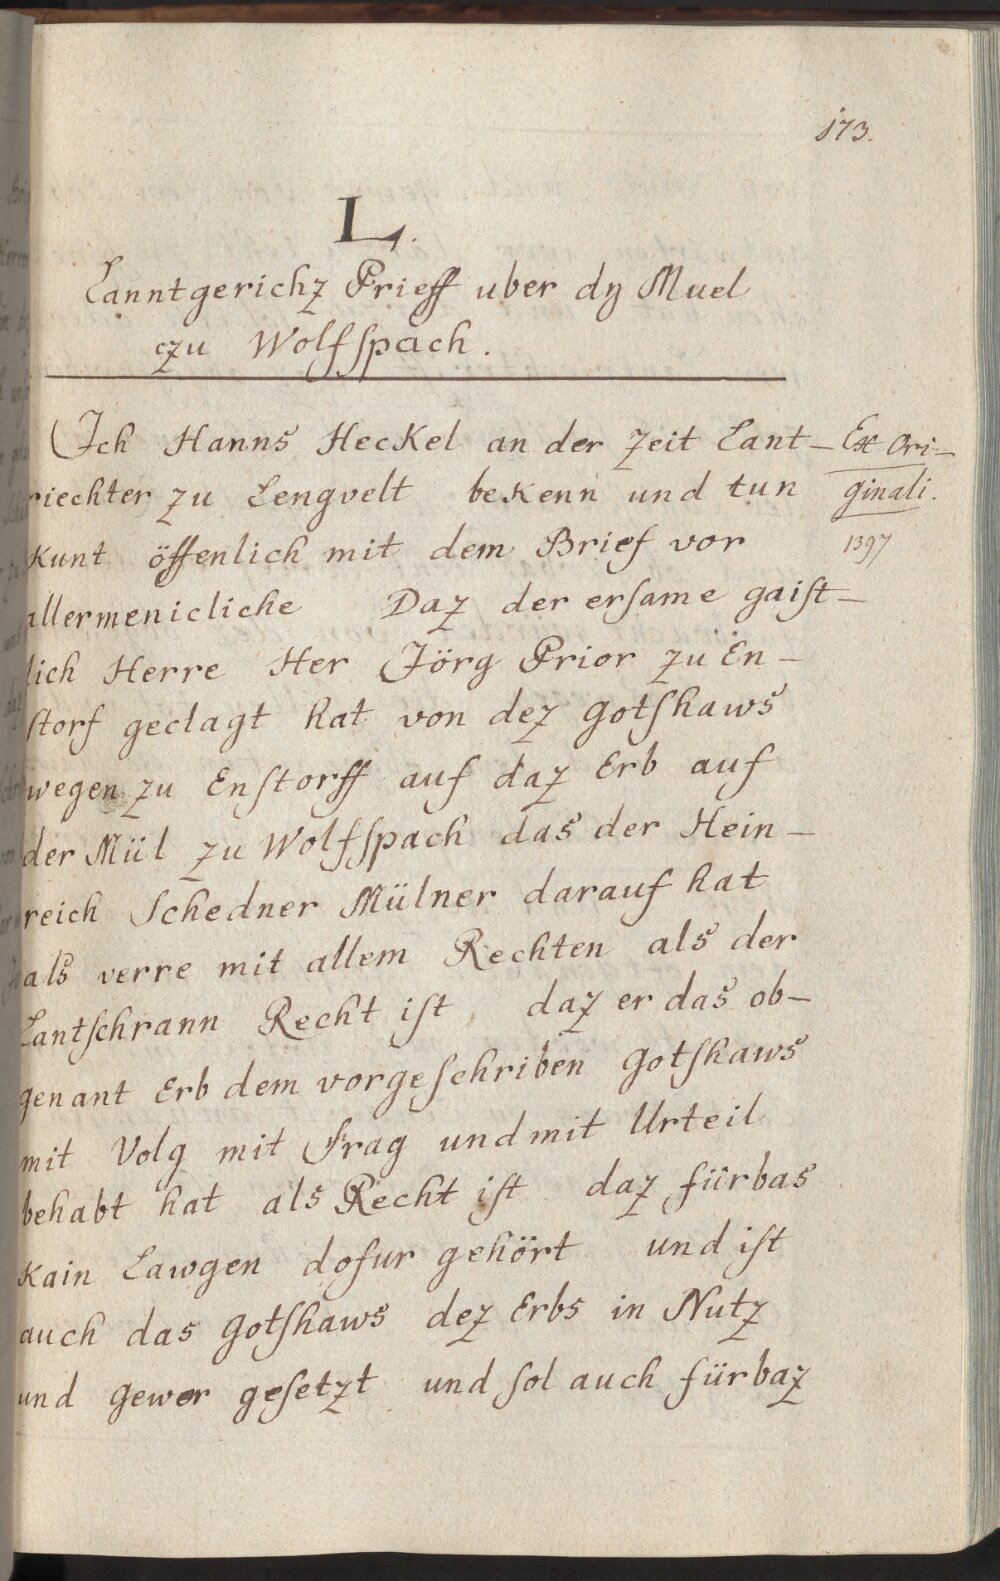 173.
L.
Lanntgerichz Prieff uber dy Muel
czu Wolfſpach.
Ich Hanns Heckel an der zeit Lant-
riechter zu Lengvelt bekenn und tun
kunt öffenlich mit dem Brief vor
allermenicliche Daz der erſame gaiſt-
lich Herre Her Jörg Prior zu En-
ſtorf geclagt hat von dez gotſhaws
wegen zu Enſtorff auf daz Erb auf
der Mül zu Wolfſpach das der Hein-
reich Schedner Mülner darauf hat
als verre mit allem Rechten als der
Lantſchrann Recht iſt daz er das ob-
genant Erb dem vorgeſchriben gotſhaws
mit Volg mit Frag und mit Urteil
behabt hat als Recht iſt daz fürbas
kain Lawgen dofur gehört und iſt
auch das gotſhaws dez Erbs in Nutz
und gewer geſetzt und ſol auch fürbaz
Ex Ori-
ginali.
1397